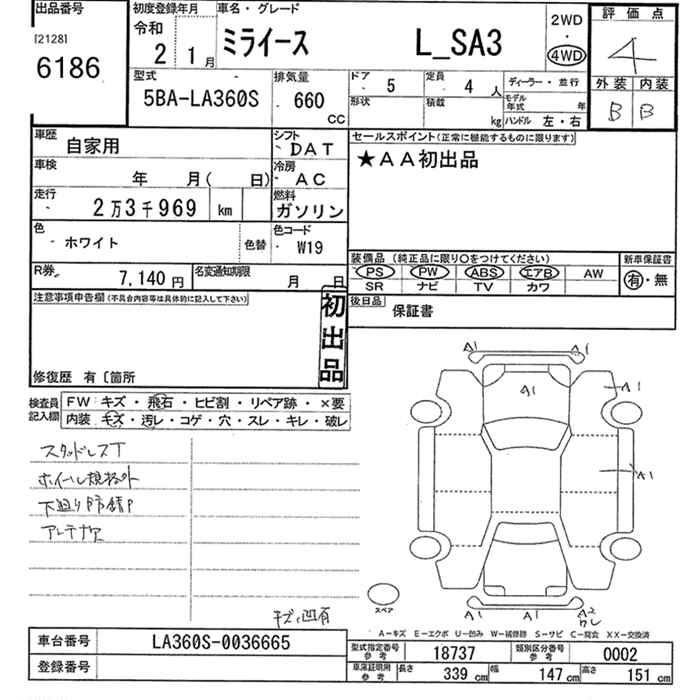 出品番号 初度登録年月 車名・グレード 2WD ・ 4WD 評価点
[2128] 6186 令和 2 1月 ミライース L_SA3 4
外装 内装
B B
型式 排気量 ドア 5 定員 4人 ディーラー・並行
5BA-LA360S 660 CC 形状 積載 kg モデル年式 年 ハンドル 左・右
車歴 自家用 シフト DAT セールスポイント(正常に機能するものに限ります)
車検 年 月( 日) 冷房 AC ★AA初出品
走行 2万3千969 km 燃料 ガソリン
色 ホワイト 色替 色コード W19
装備品 (純正品に限り○をつけてください) 新車保証書
PS PW ABS エアB AW 有・無
SR ナビ TV カワ
R券 7,140円 名変通知期限 月 日
後日品 保証書
注意事項申告欄(不具合内容等は具体的に記入して下さい) 初出品
修復歴 有〔箇所
検査員記入欄 FW キズ・飛石・ヒビ割・リペア跡・×要
内装 キズ・汚レ・コゲ・穴・スレ・キレ・破レ
スタッドレスT
ホイール規格外
下廻り防錆P
アンテナ欠
キズ、凹有
A1 A1
A1 A1
A1
A1 A1 A2
スペア
A-キズ E-エクボ U-凹み W-補修跡 S-サビ C-腐食 XX-交換済
車台番号 LA360S-0036665 型式指定番号 参考 18737 類別区分番号 参考 0002
登録番号 車庫証明用 参考 長さ 339 cm 幅 147 cm 高さ 151 cm